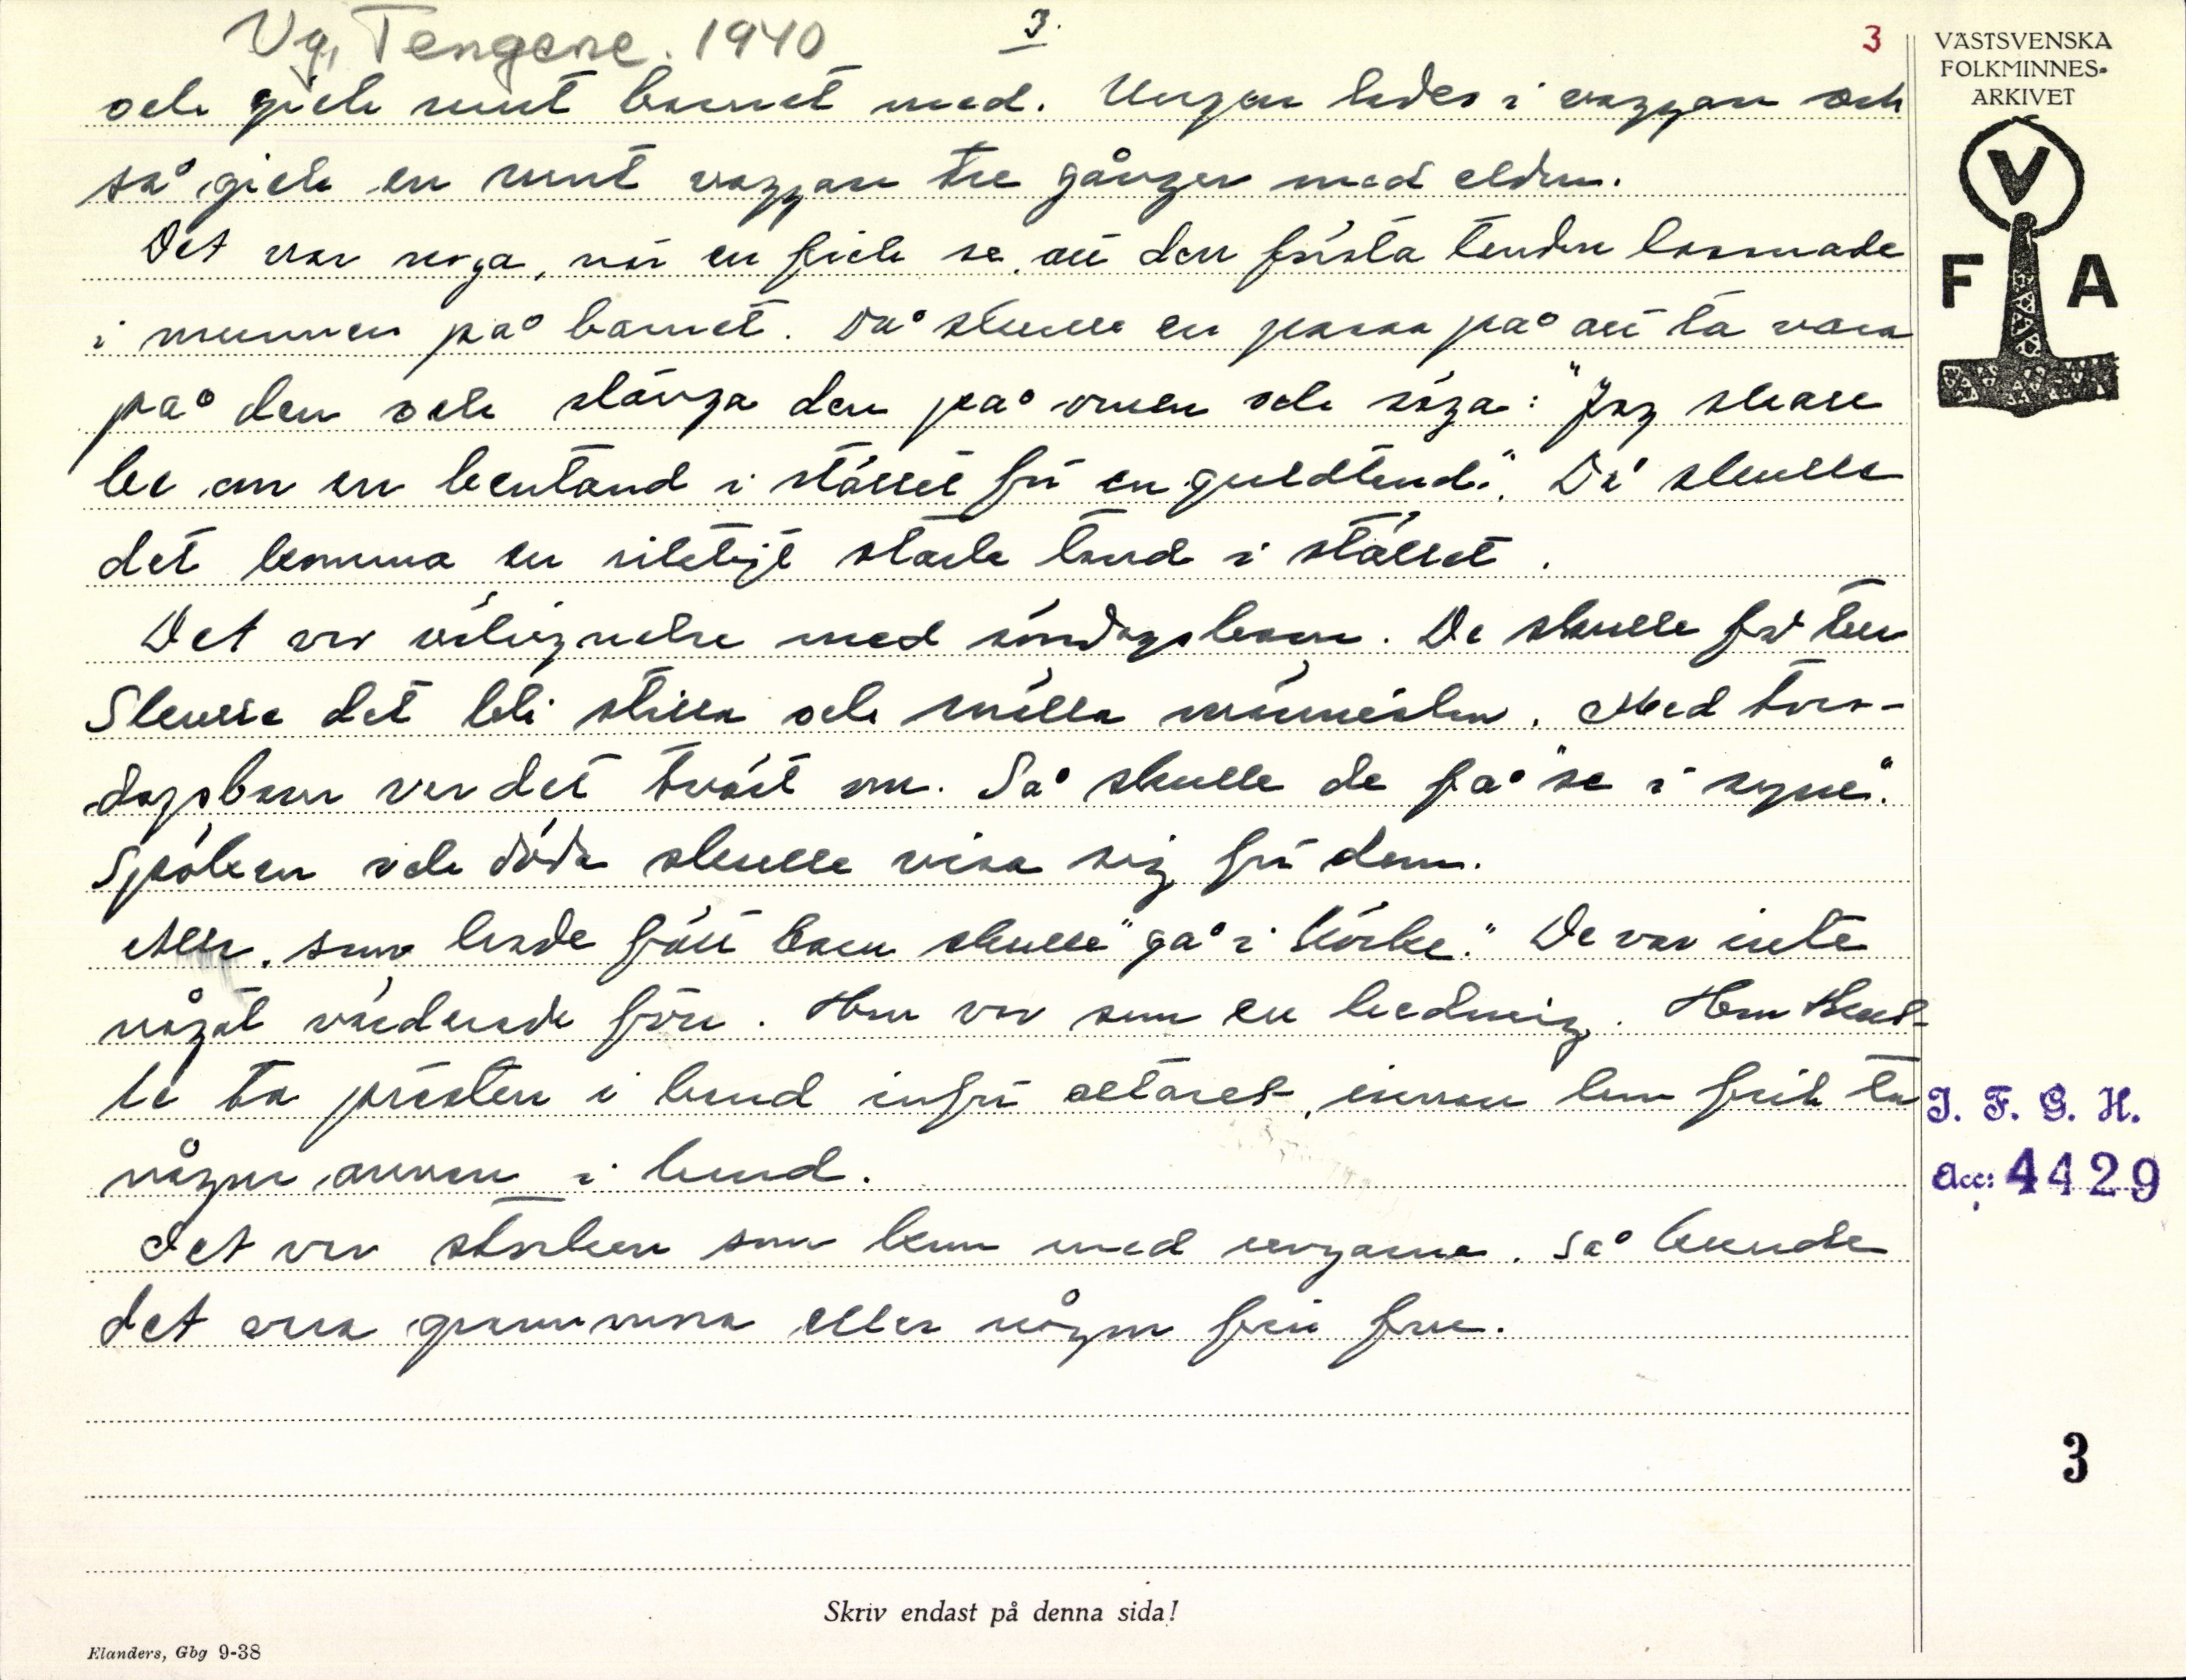 Vg, Tengene. 1940
3.
3
och gick runt barnet med. Ungen lades i vaggan och
så gick en runt vaggan tre gånger med elden.
Det var noga, när en fick se att den första tanden lossnade
i munnen på barnet. Då skulle en passa på att ta vara
på den och slänga den på ornen och säga: "Jag skall
be om en bentand i stället för en guldtand." Då skulle
det komma en riktigt stark tand i stället.
Det var välsignelse med söndagsbarn. De skulle få tur
Skulle det bli stilla och snälla människor. Med tors-
dagsbarn var det tvärt om. Så skulle de få "se i syne".
Spöken och döda skulle visa sig för dem.
Alla, som hade fått barn skulle "gå i körke." De var inte
något värderade förr. Hon var som en hedning. Hon skul-
le ta prästen i hand inför altaret, innan hon fick ta
någon annan i hand.
Det var storken som kom med ungarna. Så kunde
det vara grannmora eller någon fru.
VÄSTSVENSKA
FOLKMINNES-
ARKIVET
V
F A
I. F. G. H.
Acc: 4429
3
Skriv endast på denna sida!
Elanders, Gbg 9-38